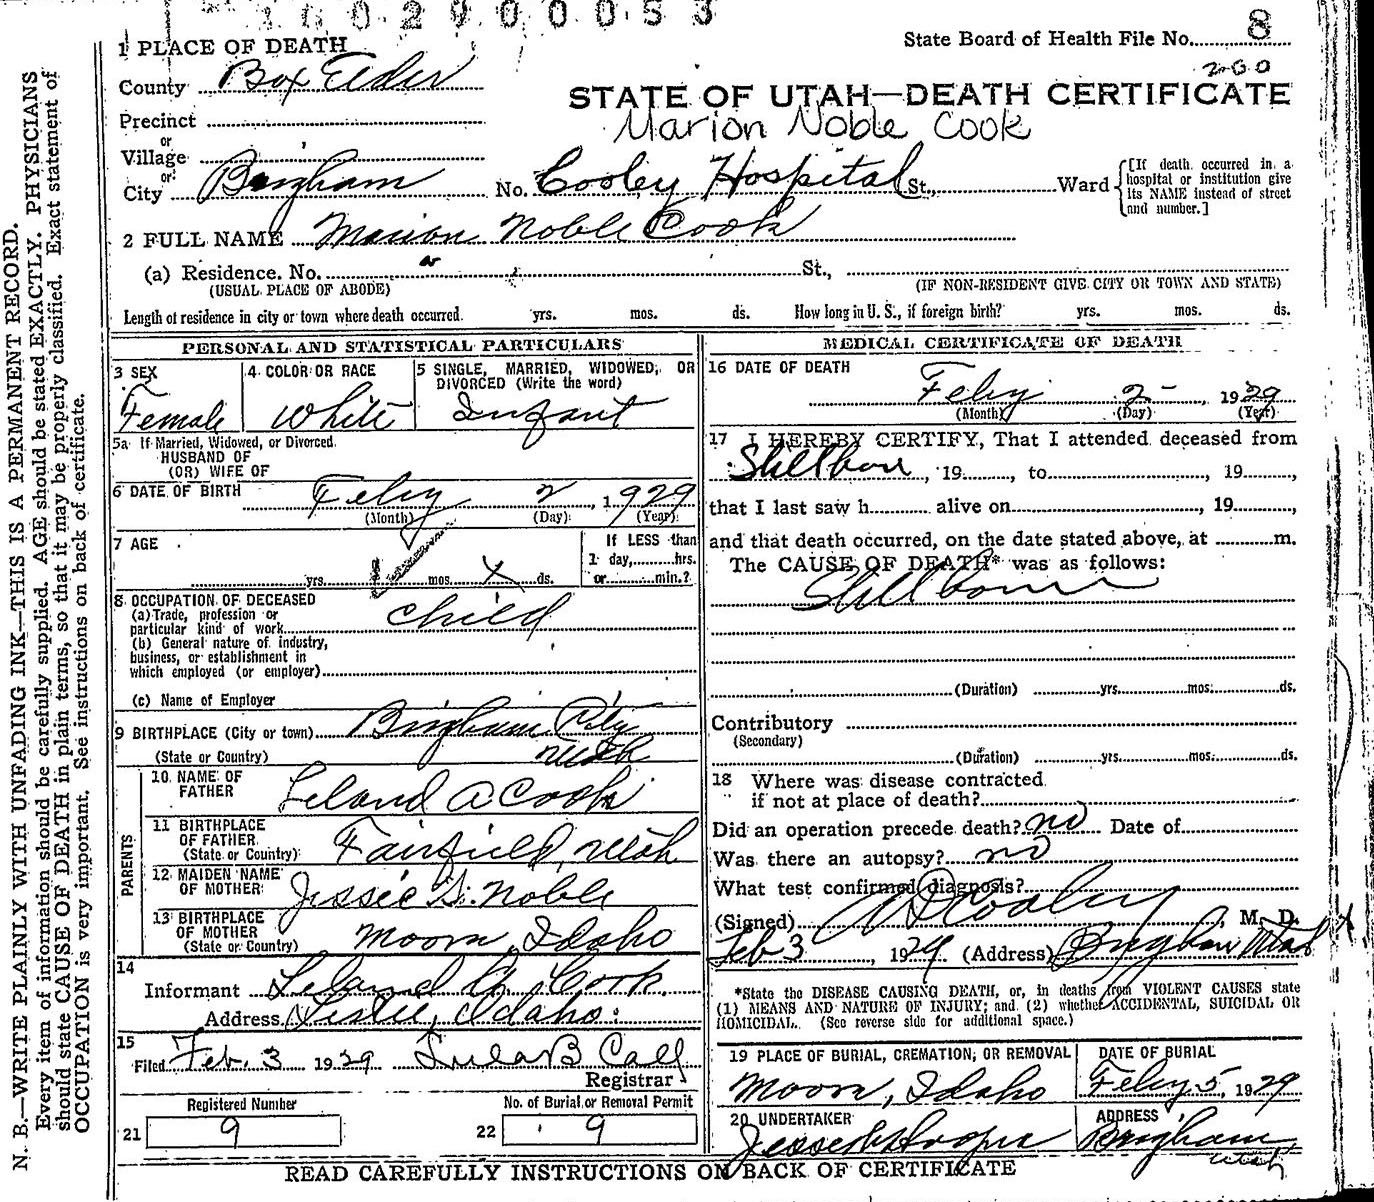 1002900053
State Board of Health File No. 8
200
1 PLACE OF DEATH
County Box Elder
STATE OF UTAH—DEATH CERTIFICATE
Marion Noble Cook
Precinct
or
Village
or
City Brigham No. Cooley Hospital St., Ward
[If death occurred in a hospital or institution give its NAME instead of street and number.]
2 FULL NAME Marion Noble Cook
(a) Residence. No. St.,
(USUAL PLACE OF ABODE) (IF NON-RESIDENT GIVE CITY OR TOWN AND STATE)
Length of residence in city or town where death occurred. yrs. mos. ds. How long in U. S., if foreign birth? yrs. mos. ds.
PERSONAL AND STATISTICAL PARTICULARS
3 SEX
Female
4 COLOR OR RACE
White
5 SINGLE, MARRIED, WIDOWED, OR
DIVORCED (Write the word)
Infant
5a If Married, Widowed, or Divorced
HUSBAND OF
(OR) WIFE OF
6 DATE OF BIRTH Feby 2, 1929
(Month) (Day) (Year)
7 AGE
yrs. mos. X ds.
If LESS than
1 day, hrs.
or min.?
8 OCCUPATION OF DECEASED
(a) Trade, profession or
particular kind of work child
(b) General nature of industry,
business, or establishment in
which employed (or employer)
(c) Name of Employer
9 BIRTHPLACE (City or town) Brigham City
(State or Country) Utah
PARENTS
10 NAME OF
FATHER Leland A Cook
11 BIRTHPLACE
OF FATHER
(State or Country) Fairfield, Utah
12 MAIDEN NAME
OF MOTHER Jessie G. Noble
13 BIRTHPLACE
OF MOTHER
(State or Country) Moore, Idaho
14
Informant Leland A. Cook
Address Leslie, Idaho.
15
Filed Feb. 3 1929 Lula B Call
Registrar
Registered Number
21 9
No. of Burial or Removal Permit
22 9
MEDICAL CERTIFICATE OF DEATH
16 DATE OF DEATH
Feby 2 1929
(Month) (Day) (Year)
17 I HEREBY CERTIFY, That I attended deceased from
Stillborn, 19 , to , 19 ,
that I last saw h alive on , 19 ,
and that death occurred, on the date stated above, at m.
The CAUSE OF DEATH* was as follows:
Stillborn
(Duration) yrs. mos. ds.
Contributory
(Secondary)
(Duration) yrs. mos. ds.
18 Where was disease contracted
if not at place of death?
Did an operation precede death? no Date of
Was there an autopsy? no
What test confirmed diagnosis?
(Signed) A D Cooley, M. D.
Feb 3, 1929 (Address) Brigham Utah X
*State the DISEASE CAUSING DEATH, or, in deaths from VIOLENT CAUSES state
(1) MEANS AND NATURE OF INJURY; and (2) whether ACCIDENTAL, SUICIDAL OR
HOMICIDAL. (See reverse side for additional space.)
19 PLACE OF BURIAL, CREMATION, OR REMOVAL
Moore, Idaho
DATE OF BURIAL
Feby 5, 1929
20 UNDERTAKER
ADDRESS
Brigham,
Utah
READ CAREFULLY INSTRUCTIONS ON BACK OF CERTIFICATE
N. B.—WRITE PLAINLY WITH UNFADING INK—THIS IS A PERMANENT RECORD.
Every item of information should be carefully supplied. AGE should be stated EXACTLY. PHYSICIANS
should state CAUSE OF DEATH in plain terms, so that it may be properly classified. Exact statement of
OCCUPATION is very important. See instructions on back of certificate.